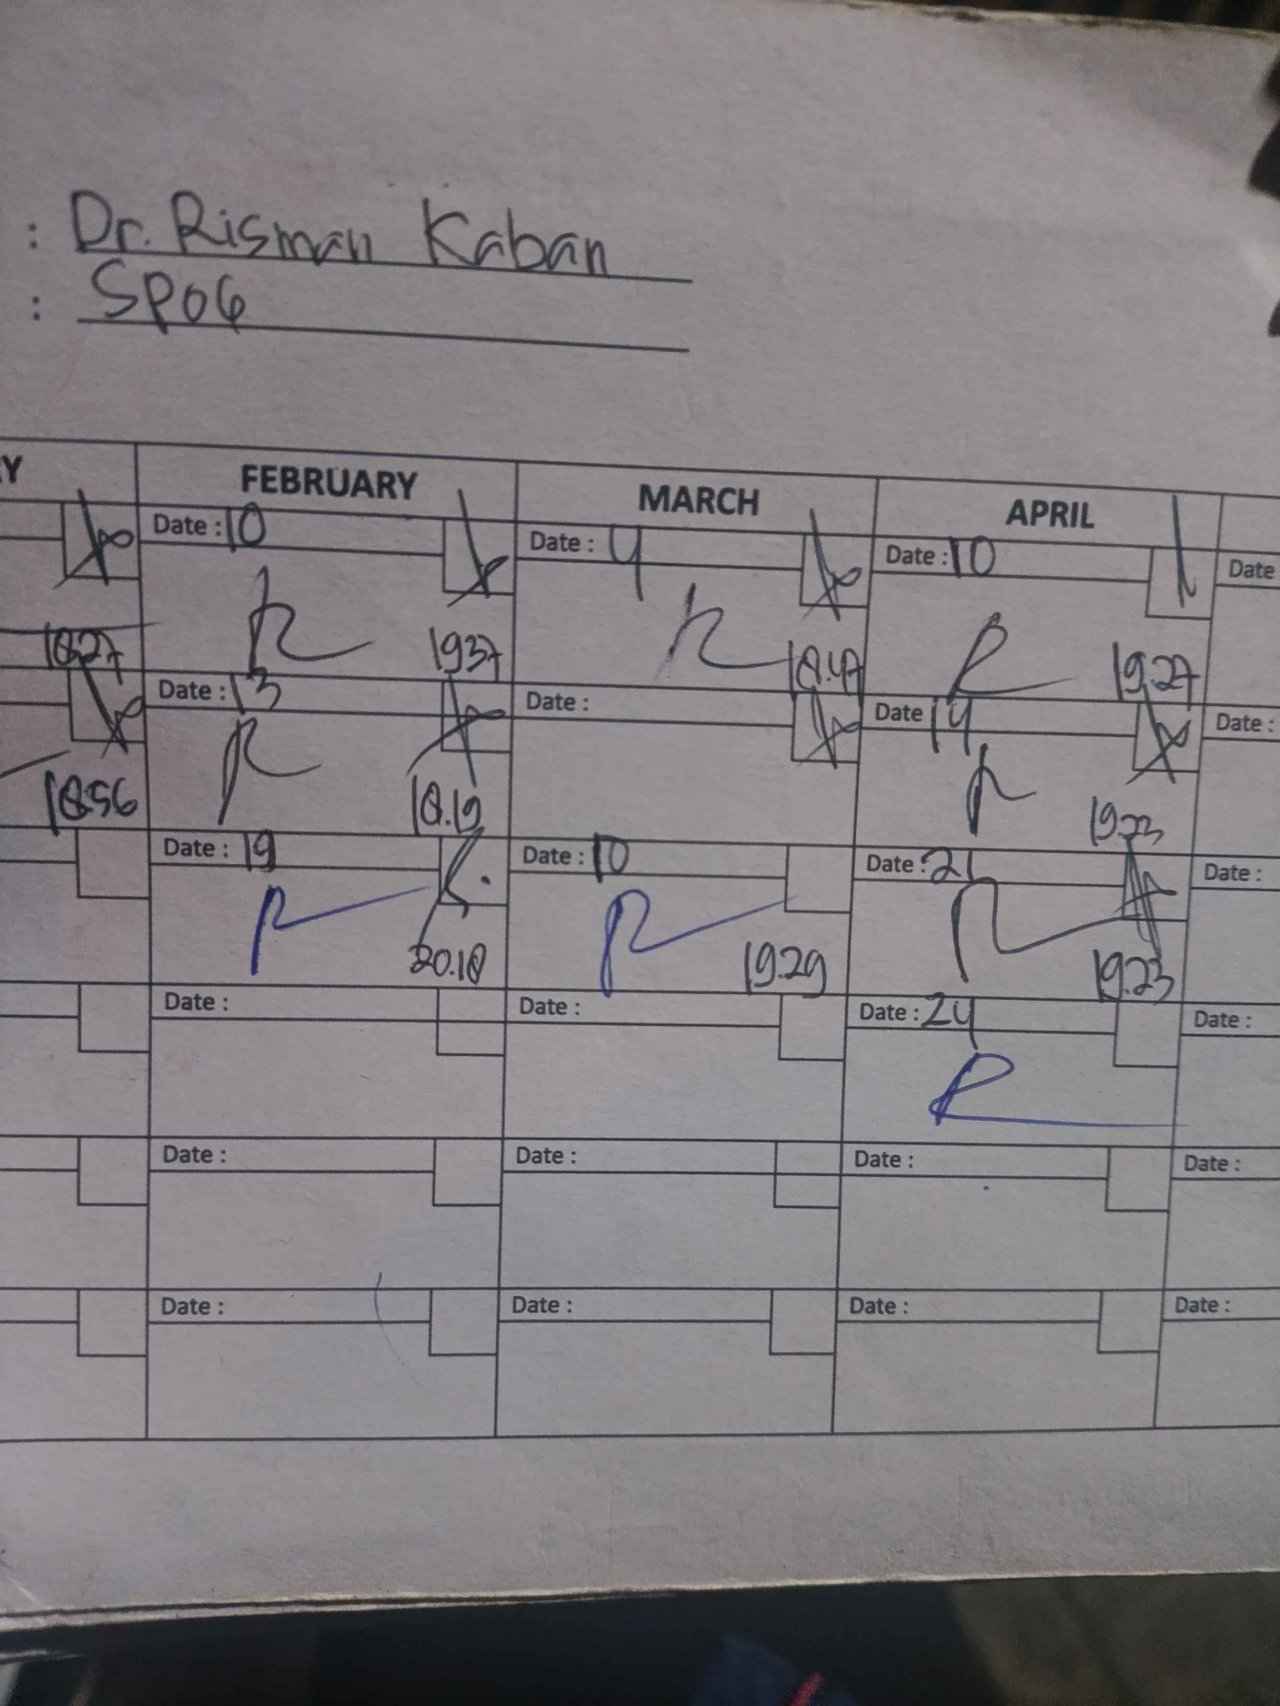 : Dr. Risman Kaban
: SPOG
Y FEBRUARY MARCH APRIL
Date : 10 Date : 4 Date : 10 Date
18.27 19.37 18.47 19.27
Date : 13 Date : Date 14 Date :
18.56 18.19 19.23
Date : 19 Date : 10 Date : 21 Date :
20.18 19.29 19.23
Date : Date : Date : 24 Date :
Date : Date : Date : Date :
Date : Date : Date : Date :